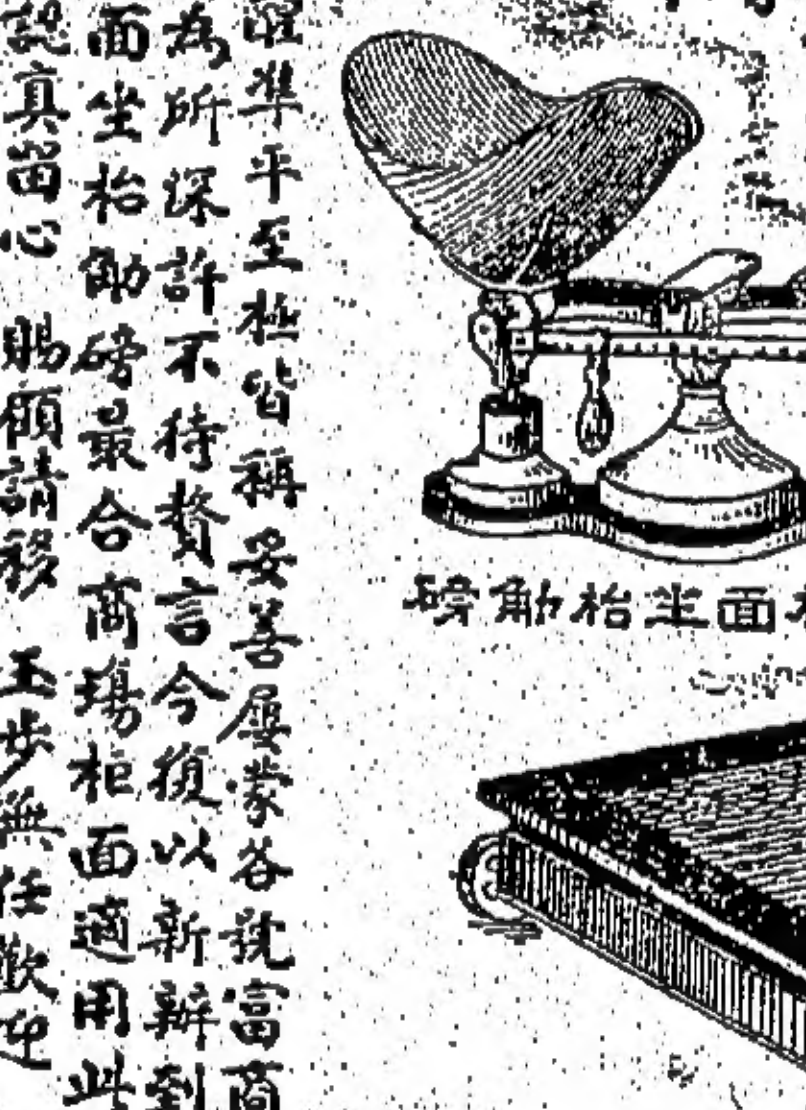 準平至極皆稱妥善屢蒙各號富商
為所深許不待贅言今復以新辦到
面坐枱觔磅最合商塲柜面適用此
認真留心 賜顧請移 玉步無任歡迎
磅觔枱坐面